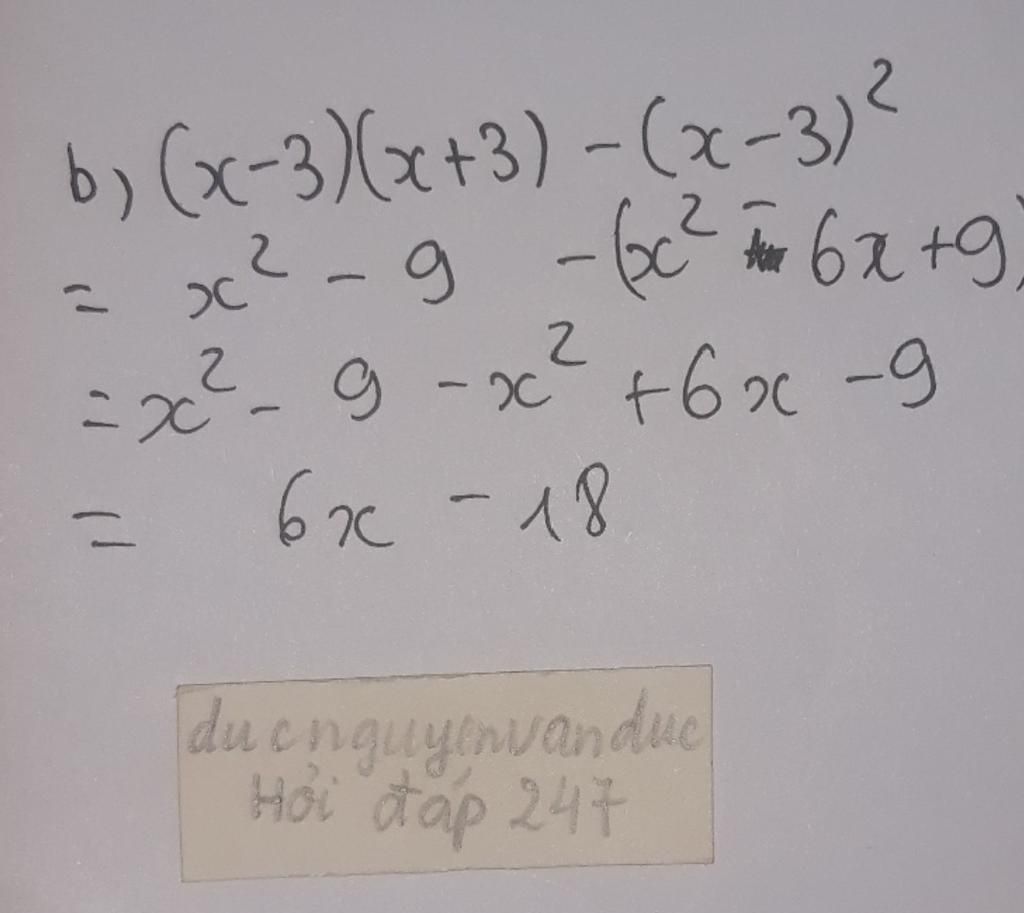 b, (x-3)(x+3) - (x-3)²
= x² - 9 - (x² - 6x +9)
= x² - 9 - x² + 6x - 9
= 6x - 18
ducnguyenvanduc
Hỏi đáp 247